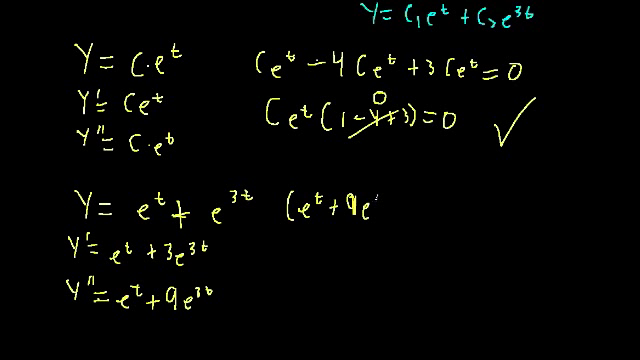 Y = C₁e^t + C₂e^3t
Y = C·e^t
Y' = Ce^t
Y'' = C·e^t
Ce^t - 4Ce^t + 3Ce^t = 0
0
Ce^t (1 - 4 + 3) = 0 ✓
Y = e^t + e^3t (e^t + 9e
Y' = e^t + 3e^3t
Y'' = e^t + 9e^3t